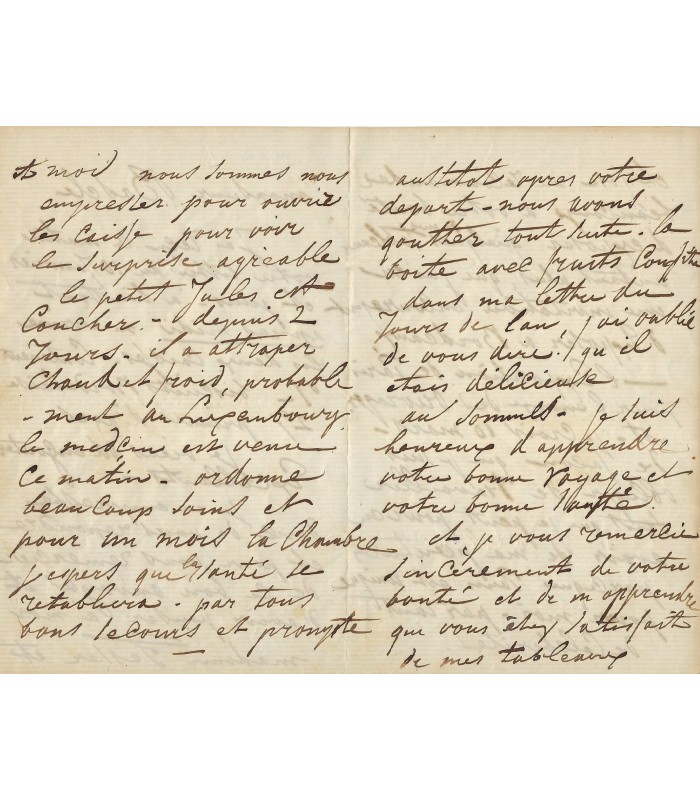 et moi nous sommes nous
empresser pour ouvrir
les caisse pour voir
le surprise agréable
le petit Jules est
Coucher. - depuis 2
Jours - il a attraper
Chaud et froid, probable
- ment au Luxembourg.
le medcin est venu
Ce matin - ordonne
beaucoup soins et
pour un mois la Chambre
j espers que la santé se
retablira - par tous
bons secours et prompte
austitot apres votre
depart - nous avons
gouther tout suite - la
boite avec fruits Confits
dans ma lettre du
Jours de l'an, j'ai oublié
de vous dire. qu il
etais délicieux
au - je suis
heureux d apprendre
votre bonne voyage et
votre bonne santé.
et je vous remercie
sincérement de votre
bonté et de m apprendre
que vous êtez satisfait
de mes tableaux